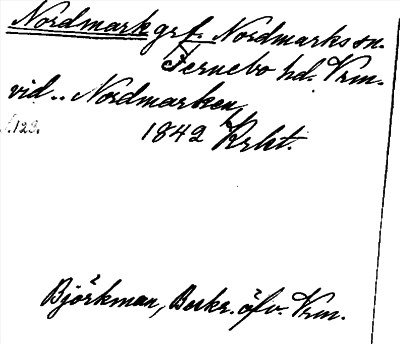 Nordmark grf. Nordmarks sn.
Fernebo hd. Vrm.
vid .. Nordmarken,
f. 123.
1842 Krht.
Björkman, Beskr. öfv. Vrm.